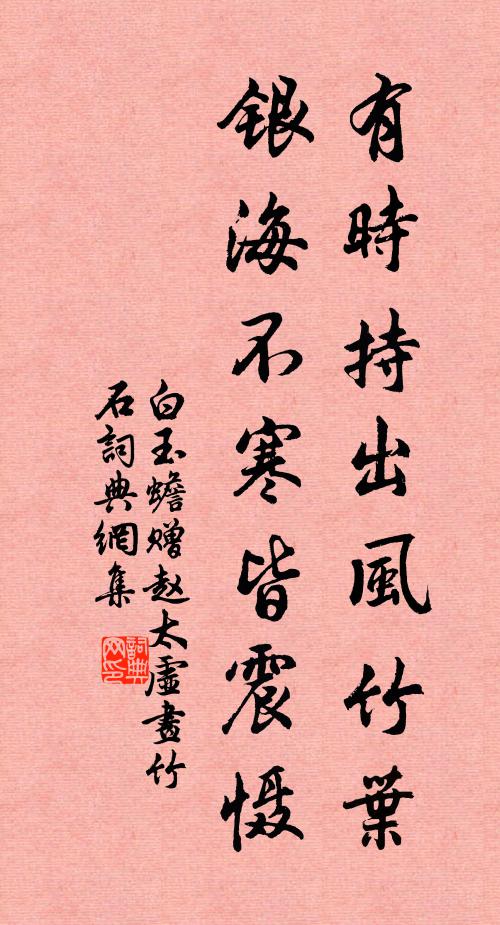 有時持出風竹葉
銀海不寒皆震慑
白玉蟾赠赵太虛畫竹
石詞典網集
詞典
网印